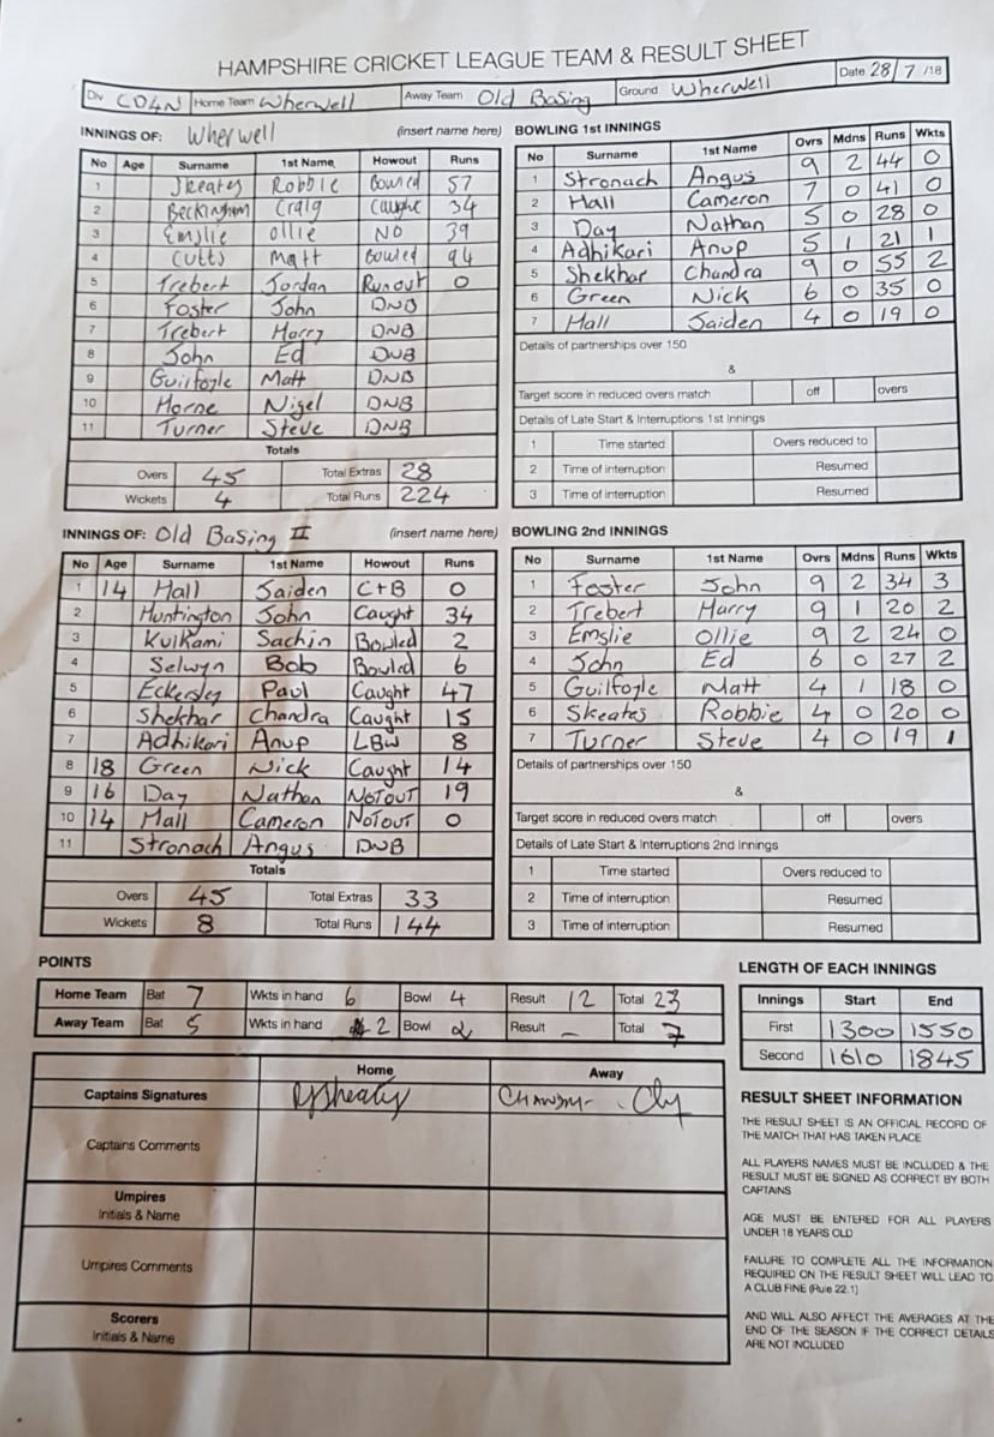 HAMPSHIRE CRICKET LEAGUE TEAM & RESULT SHEET
Div CD4N Home Team Wherwell Away Team Old Basing Ground Wherwell Date 28/7/18
INNINGS OF: Wherwell (insert name here)
No Age Surname 1st Name Howout Runs
1 Skeates Robbie Bowled 57
2 Beckingham Craig Caught 34
3 Emslie Ollie NO 39
4 Cutts Matt Bowled 94
5 Trebert Jordan Runout 0
6 Foster John DNB
7 Trebert Harry DNB
8 John Ed DNB
9 Guilfoyle Matt DNB
10 Horne Nigel DNB
11 Turner Steve DNB
Totals
Overs 45 Total Extras 28
Wickets 4 Total Runs 224
BOWLING 1st INNINGS
No Surname 1st Name Ovrs Mdns Runs Wkts
1 Stronach Angus 9 2 44 0
2 Hall Cameron 7 0 41 0
3 Day Nathan 5 0 28 0
4 Adhikari Anup 5 1 21 1
5 Shekhar Chandra 9 0 55 2
6 Green Nick 6 0 35 0
7 Hall Jaiden 4 0 19 0
Details of partnerships over 150
&
Target score in reduced overs match off overs
Details of Late Start & Interruptions 1st Innings
1 Time started Overs reduced to
2 Time of interruption Resumed
3 Time of interruption Resumed
INNINGS OF: Old Basing II (insert name here)
No Age Surname 1st Name Howout Runs
1 14 Hall Jaiden C+B 0
2 Huntington John Caught 34
3 Kulkami Sachin Bowled 2
4 Selwyn Bob Bowled 6
5 Eckersley Paul Caught 47
6 Shekhar Chandra Caught 15
7 Adhikari Anup LBW 8
8 18 Green Nick Caught 14
9 16 Day Nathan NOTOUT 19
10 14 Hall Cameron NOTOUT 0
11 Stronach Angus DNB
Totals
Overs 45 Total Extras 33
Wickets 8 Total Runs 144
BOWLING 2nd INNINGS
No Surname 1st Name Ovrs Mdns Runs Wkts
1 Foster John 9 2 34 3
2 Trebert Harry 9 1 20 2
3 Emslie Ollie 9 2 24 0
4 John Ed 6 0 27 2
5 Guilfoyle Matt 4 1 18 0
6 Skeates Robbie 4 0 20 0
7 Turner Steve 4 0 19 1
Details of partnerships over 150
&
Target score in reduced overs match off overs
Details of Late Start & Interruptions 2nd Innings
1 Time started Overs reduced to
2 Time of interruption Resumed
3 Time of interruption Resumed
POINTS
Home Team Bat 7 Wkts in hand 6 Bowl 4 Result 12 Total 23
Away Team Bat 5 Wkts in hand 2 Bowl 2 Result - Total 7
LENGTH OF EACH INNINGS
Innings Start End
First 1300 1550
Second 1610 1845
Home Away
Captains Signatures
Captains Comments
Umpires
Initials & Name
Umpires Comments
Scorers
Initials & Name
RESULT SHEET INFORMATION
THE RESULT SHEET IS AN OFFICIAL RECORD OF
THE MATCH THAT HAS TAKEN PLACE
ALL PLAYERS NAMES MUST BE INCLUDED & THE
RESULT MUST BE SIGNED AS CORRECT BY BOTH
CAPTAINS
AGE MUST BE ENTERED FOR ALL PLAYERS
UNDER 18 YEARS OLD
FAILURE TO COMPLETE ALL THE INFORMATION
REQUIRED ON THE RESULT SHEET WILL LEAD TO
A CLUB FINE (Rule 22.1)
AND WILL ALSO AFFECT THE AVERAGES AT THE
END OF THE SEASON IF THE CORRECT DETAILS
ARE NOT INCLUDED